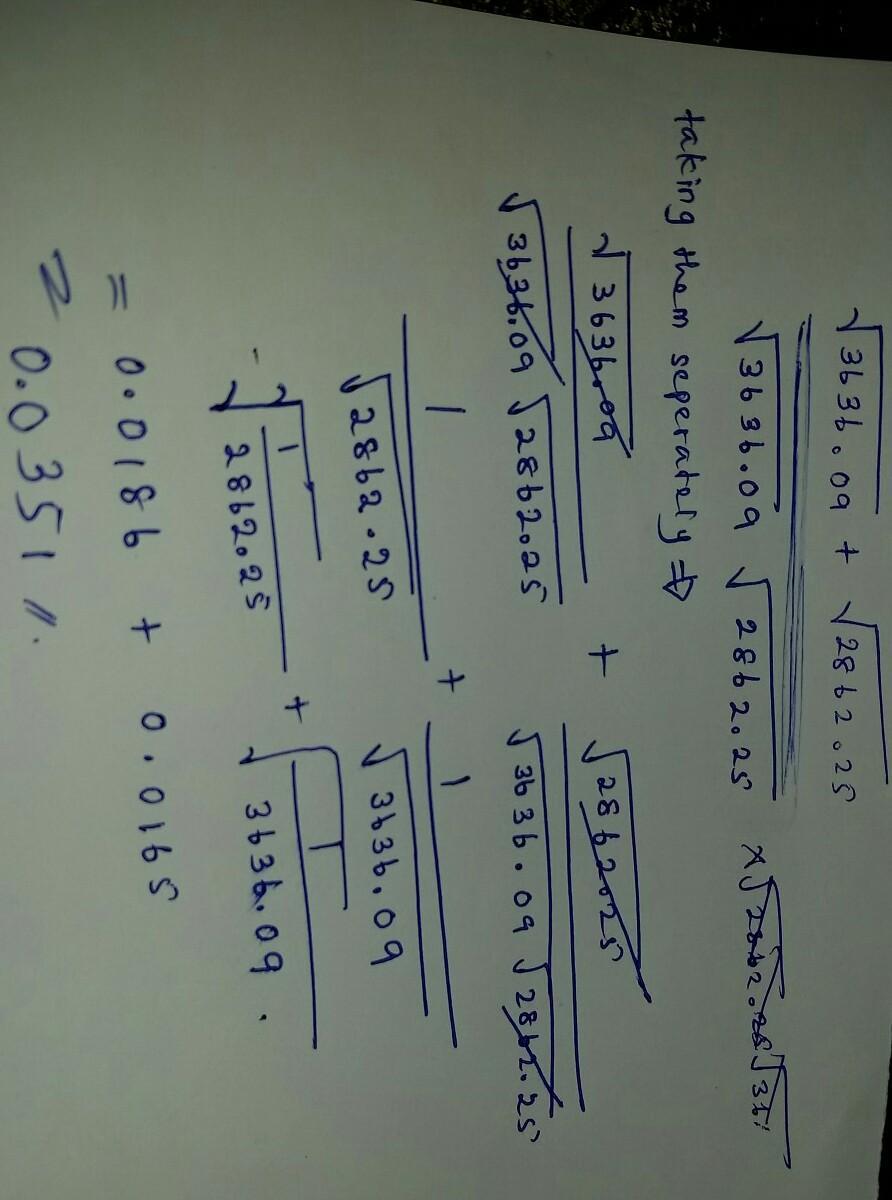 √3636.09 + √2862.25
√3636.09 √2862.25 x√2862.25√36
taking them seperately ⇒
√3636.09 + √2862.25
√3636.09 √2862.25 √3636.09 √2862.25
1 + 1
√2862.25 √3636.09
√1 + √1
2862.25 3636.09 .
= 0.0186 + 0.0165
≈ 0.0351 //.